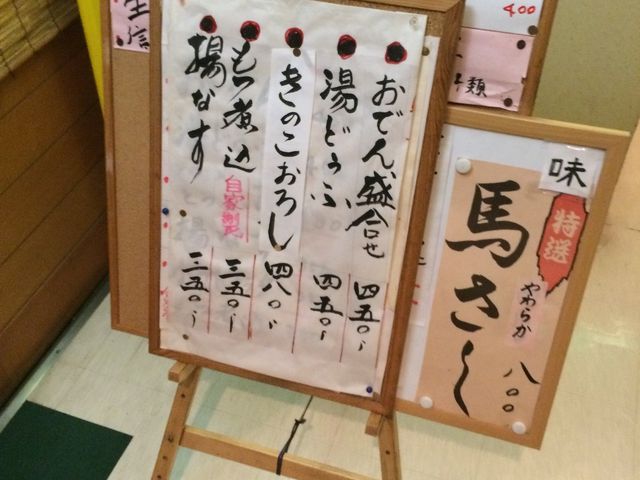 おでん盛合せ 四五〇、
湯どうふ 四五〇、
きのこおろし 四八〇、
もつ煮込 自家製 三五〇、
揚なす 三五〇、
味
特選
馬さし
やわらか
八〇〇
400
類